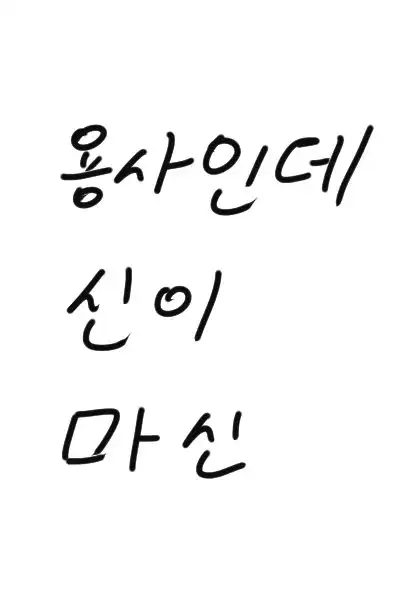 용사인데
신이
마신